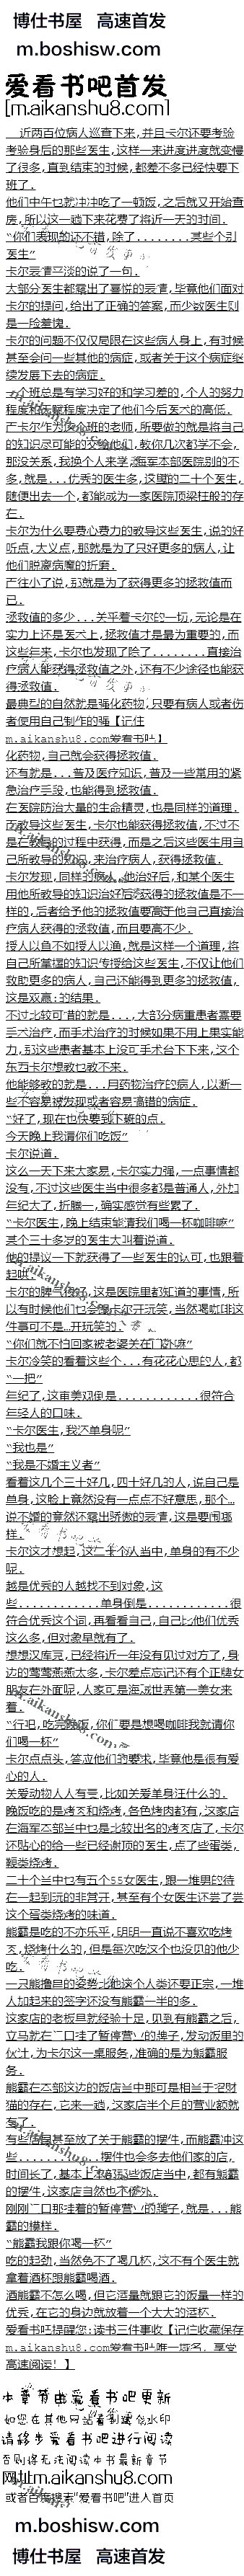 博仕书屋 高速首发
m.boshisw.com
爱看书吧首发
[m.aikanshu8.com]
近两百位病人巡查下来,并且卡尔还要考验
考验身后的那些医生,这样一来进度进度就变慢
了很多,直到结束的时候,都差不多已经快要下
班了.
他们中午也就冲冲吃了一顿饭,之后就又开始查
房,所以这一趟下来花费了将近一天的时间.
“你们表现的还不错,除了........某些个别
医生”
卡尔表情平淡的说了一句.
大部分医生都露出了喜悦的表情,毕竟他们面对
卡尔的提问,给出了正确的答案,而少数医生则
是一脸羞愧.
卡尔的问题不仅仅局限在这些病人身上,有时候
甚至会问一些其他的病症,或者关于这个病症继
续发展下去的病症.
一个班总是有学习好的和学习差的,个人的努力
程度和天赋程度决定了他们今后医术的高低.
卡尔作为这个班的老师,所要做的就是将自己
的知识尽可能的交给他们,教你几次都学不会,
那没关系,我换个人来学,海军本部医院别的不
多,就是...优秀的医生多,这里的二十个医生,
随便出去一个,都能成为一家医院顶梁柱般的存
在.
卡尔为什么要费心费力的教导这些医生,说的好
听点,大义点,那就是为了只好更多的病人,让
他们脱离病魔的折磨.
往小了说,那就是为了获得更多的拯救值而
已.
拯救值的多少...关乎着卡尔的一切,无论是在
实力上还是医术上,拯救值才是最为重要的,而
这些年来,卡尔也发现了除了........直接治
疗病人能获得拯救值之外,还有不少途径也能获
得拯救值.
最典型的自然就是强化药物,只要有病人或者伤
者使用自己制作的强【记住
m.aikanshu8.com爱看书吧】
化药物,自己就会获得拯救值.
还有就是...普及医疗知识,普及一些常用的紧
急治疗手段,也能得到拯救值.
在医院防治大量的生命精灵,也是同样的道理.
而教导这些医生,卡尔也能获得拯救值,不过不
是在教导的过程中获得,而是之后这些医生用自
己所教导的东西,来治疗病人,获得拯救值.
卡尔发现,同样的病人,他治好后,和某个医生
用他所教导的知识治好后获得的拯救值是不一
样的,后者给予他的拯救值要高于他自己直接治
疗病人获得的拯救值,而且要高不少.
授人以鱼不如授人以渔,就是这样一个道理,将
自己所掌握的知识传授给这些医生,不仅让他们
救助更多的病人,自己还能得到更多的拯救值,
这是双赢的结果.
不过比较可惜的就是...,大部分病重患者需要
手术治疗,而手术治疗的时候如果不用上果实能
力,那这些患者基本上没可手术台下下来,这个
东西卡尔想教也教不来.
他能够教的就是...用药物治疗的病人,以断一
些不容易被发现或者容易搞错的病症.
“好了,现在也快要到下班的点.
今天晚上我请你们吃饭”
卡尔说道.
这么一天下来大家易,卡尔实力强,一点事情都
没有,不过这些医生当中很多都是普通人,外加
年纪大了,折腾一,确实感觉有些累了.
“卡尔医生,晚上结束能请我们喝一杯咖啡嘛”
某个三十多岁的医生大叫着说道.
他的提议一下就获得了一些医生的认可,也跟着
起哄.
卡尔的脾气很好,这是医院里都知道的事情,所
以有时候他们也会跟卡尔开玩笑,当然喝咖啡这
件事可不是...开玩笑的.
“你们就不怕回家被老婆关在门外嘛”
卡尔冷笑的看着这些个...有花花心思的人,都
“一把”
年纪了,这审美观倒是............很符合
年轻人的口味.
“卡尔医生,我还单身呢”
“我也是”
“我是不婚主义者”
看着这几个三十好几,四十好几的人,说自己是
单身,这脸上竟然没有一点点不好意思,那个...
说不婚的竟然还露出骄傲的表情,这是要闹哪
样.
卡尔这才想起,这二十个人当中,单身的有不少
呢.
越是优秀的人越找不到对象,这
些............单身倒是............很
符合优秀这个词,再看看自己,自己比他们优秀
这么多,但对象早就有了.
想想汉库克,已经将近一年没有见过对方了,身
边的莺莺燕燕太多,卡尔差点忘记还有个正牌女
朋友在外面呢,人家可是海贼世界第一美女来
着.
“行吧,吃完晚饭,你们要是想喝咖啡我就请你
们喝一杯”
卡尔点点头,答应他们的要求,毕竟他是很有爱
心的人.
关爱动物人人有责,比如关爱单身汪什么的.
晚饭吃的是烤肉和烧烤,各色烤肉都有,这家店
在海军本部当中也是比较出名的烤肉店了,卡尔
还贴心的给一些已经谢顶的医生,点了些蛋类,
鞭类烧烤.
二十个当中也有五个55女医生,跟一堆男的待
在一起到玩的非常开,甚至有个女医生还尝了尝
这个蛋类烧烤的味道.
熊霸是吃的不亦乐乎,明明一直说不喜欢吃烤
肉,烧烤什么的,但是每次吃这个也没见的他少
吃.
一只熊撸串的姿势比他这个人类还要正宗,一堆
人加起来的签字还没有熊霸一半的多.
这家店的老板早就经验十足,见到有熊霸之后,
立马就在门口挂了暂停营业的牌子,发动饭里的
伙计,为卡尔这一桌服务,准确的是为熊霸服
务.
熊霸在本部这边的饭店当中那可是相当于招财
猫的存在,它来一趟,这家店半个月的营业额就
有了.
有些饭店甚至放了关于熊霸的摆件,而熊霸冲这
些............摆件也会多去他们家的店,
时间长了,基本上本部这些饭店当中,都有熊霸
的摆件,这家店自然也不例外.
刚刚门口那挂着的暂停营业的牌子,就是...熊
霸的模样.
“熊霸我跟你喝一杯”
吃的起劲,当然免不了喝几杯,这不有个医生就
拿着酒杯跟熊霸喝酒.
酒熊霸不怎么喝,但它酒量就跟它的饭量一样的
优秀,在它的身边就放着一个大大的酒杯.
爱看书吧提醒您:读书三件事收【记住收藏保存
m.aikanshu8.com爱看书吧唯一域名,享受
高速阅读!】
本章节由爱看书吧更新
如您在其他网站看到这段水印
请移步爱看书吧进行阅读
否则将无法阅读本书最新章节
网址m.aikanshu8.com
或者百度搜索“爱看书吧”进入首页
m.boshisw.com
博仕书屋 高速首发